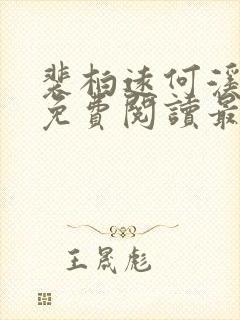 裴柏遠何瀅
免費閱讀最
王晟彪